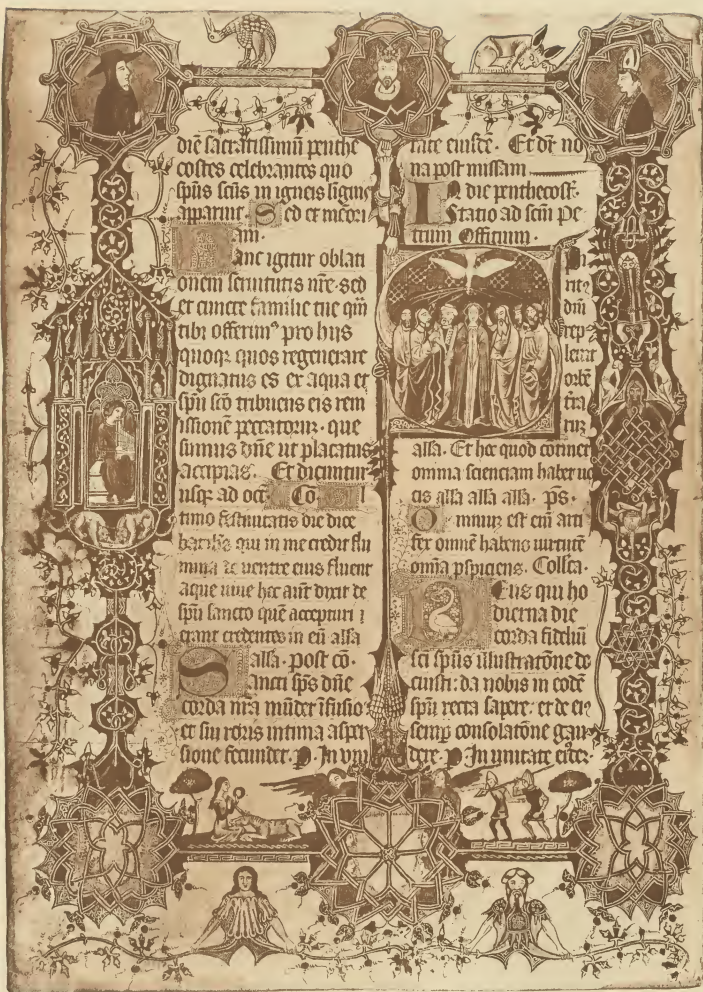 die sacratissimū penthe
costes celebrantes quo
sp̄us sc̄us in igneis
apparuit. Sed et memori
am.
Hanc igitur oblati
onem seruitutis nr̄e. sed
et cuncte familie tue q̄m
tibi offerimꝰ pro hijs
quoqꝫ quos regenerare
dignatus es ex aqua et
sp̄u sc̄o tribuens eis rem
issionē peccatorum. que
sumus dn̄e ut placatus
accipias. Et dicuntur
usqꝫ ad oct̄. Cō.
timo festiuitatis die dice
bat ih̄s qui in me credit flu
mina de ventre eius fluent
aque uiue hec aūt dixit de
sp̄u sancto quē accepturi
erant credentes in eū alla
alla. post cō.
Sancti sp̄s dn̄e
corda nr̄a mūdet īfusio
et sui roris intima asper
sione fecundet. p. In uni
tate eiusdē. Et dr̄ no
na post missam
In die penthecosṫ.
Statio ad scm̄ pe
trum Officium.
Sp̄
rit
dn̄i
rep
leuit
orbē
t̄ra
rum
alla. Et hoc quod continet
omnia scienciam habet uo
cis alla alla alla. p̄s.
Omnium est enī arti
fex omnē habens uirtutē
omīa p̄spiciens. Coll̄ta.
Deus qui ho
dierna die
corda fidelium
sc̄i sp̄us illustratōne do
cuisti: da nobis in eodē
sp̄u recta sapere: et de eiꝰ
semp̄ consolatōne gau
dere. p. In unitate